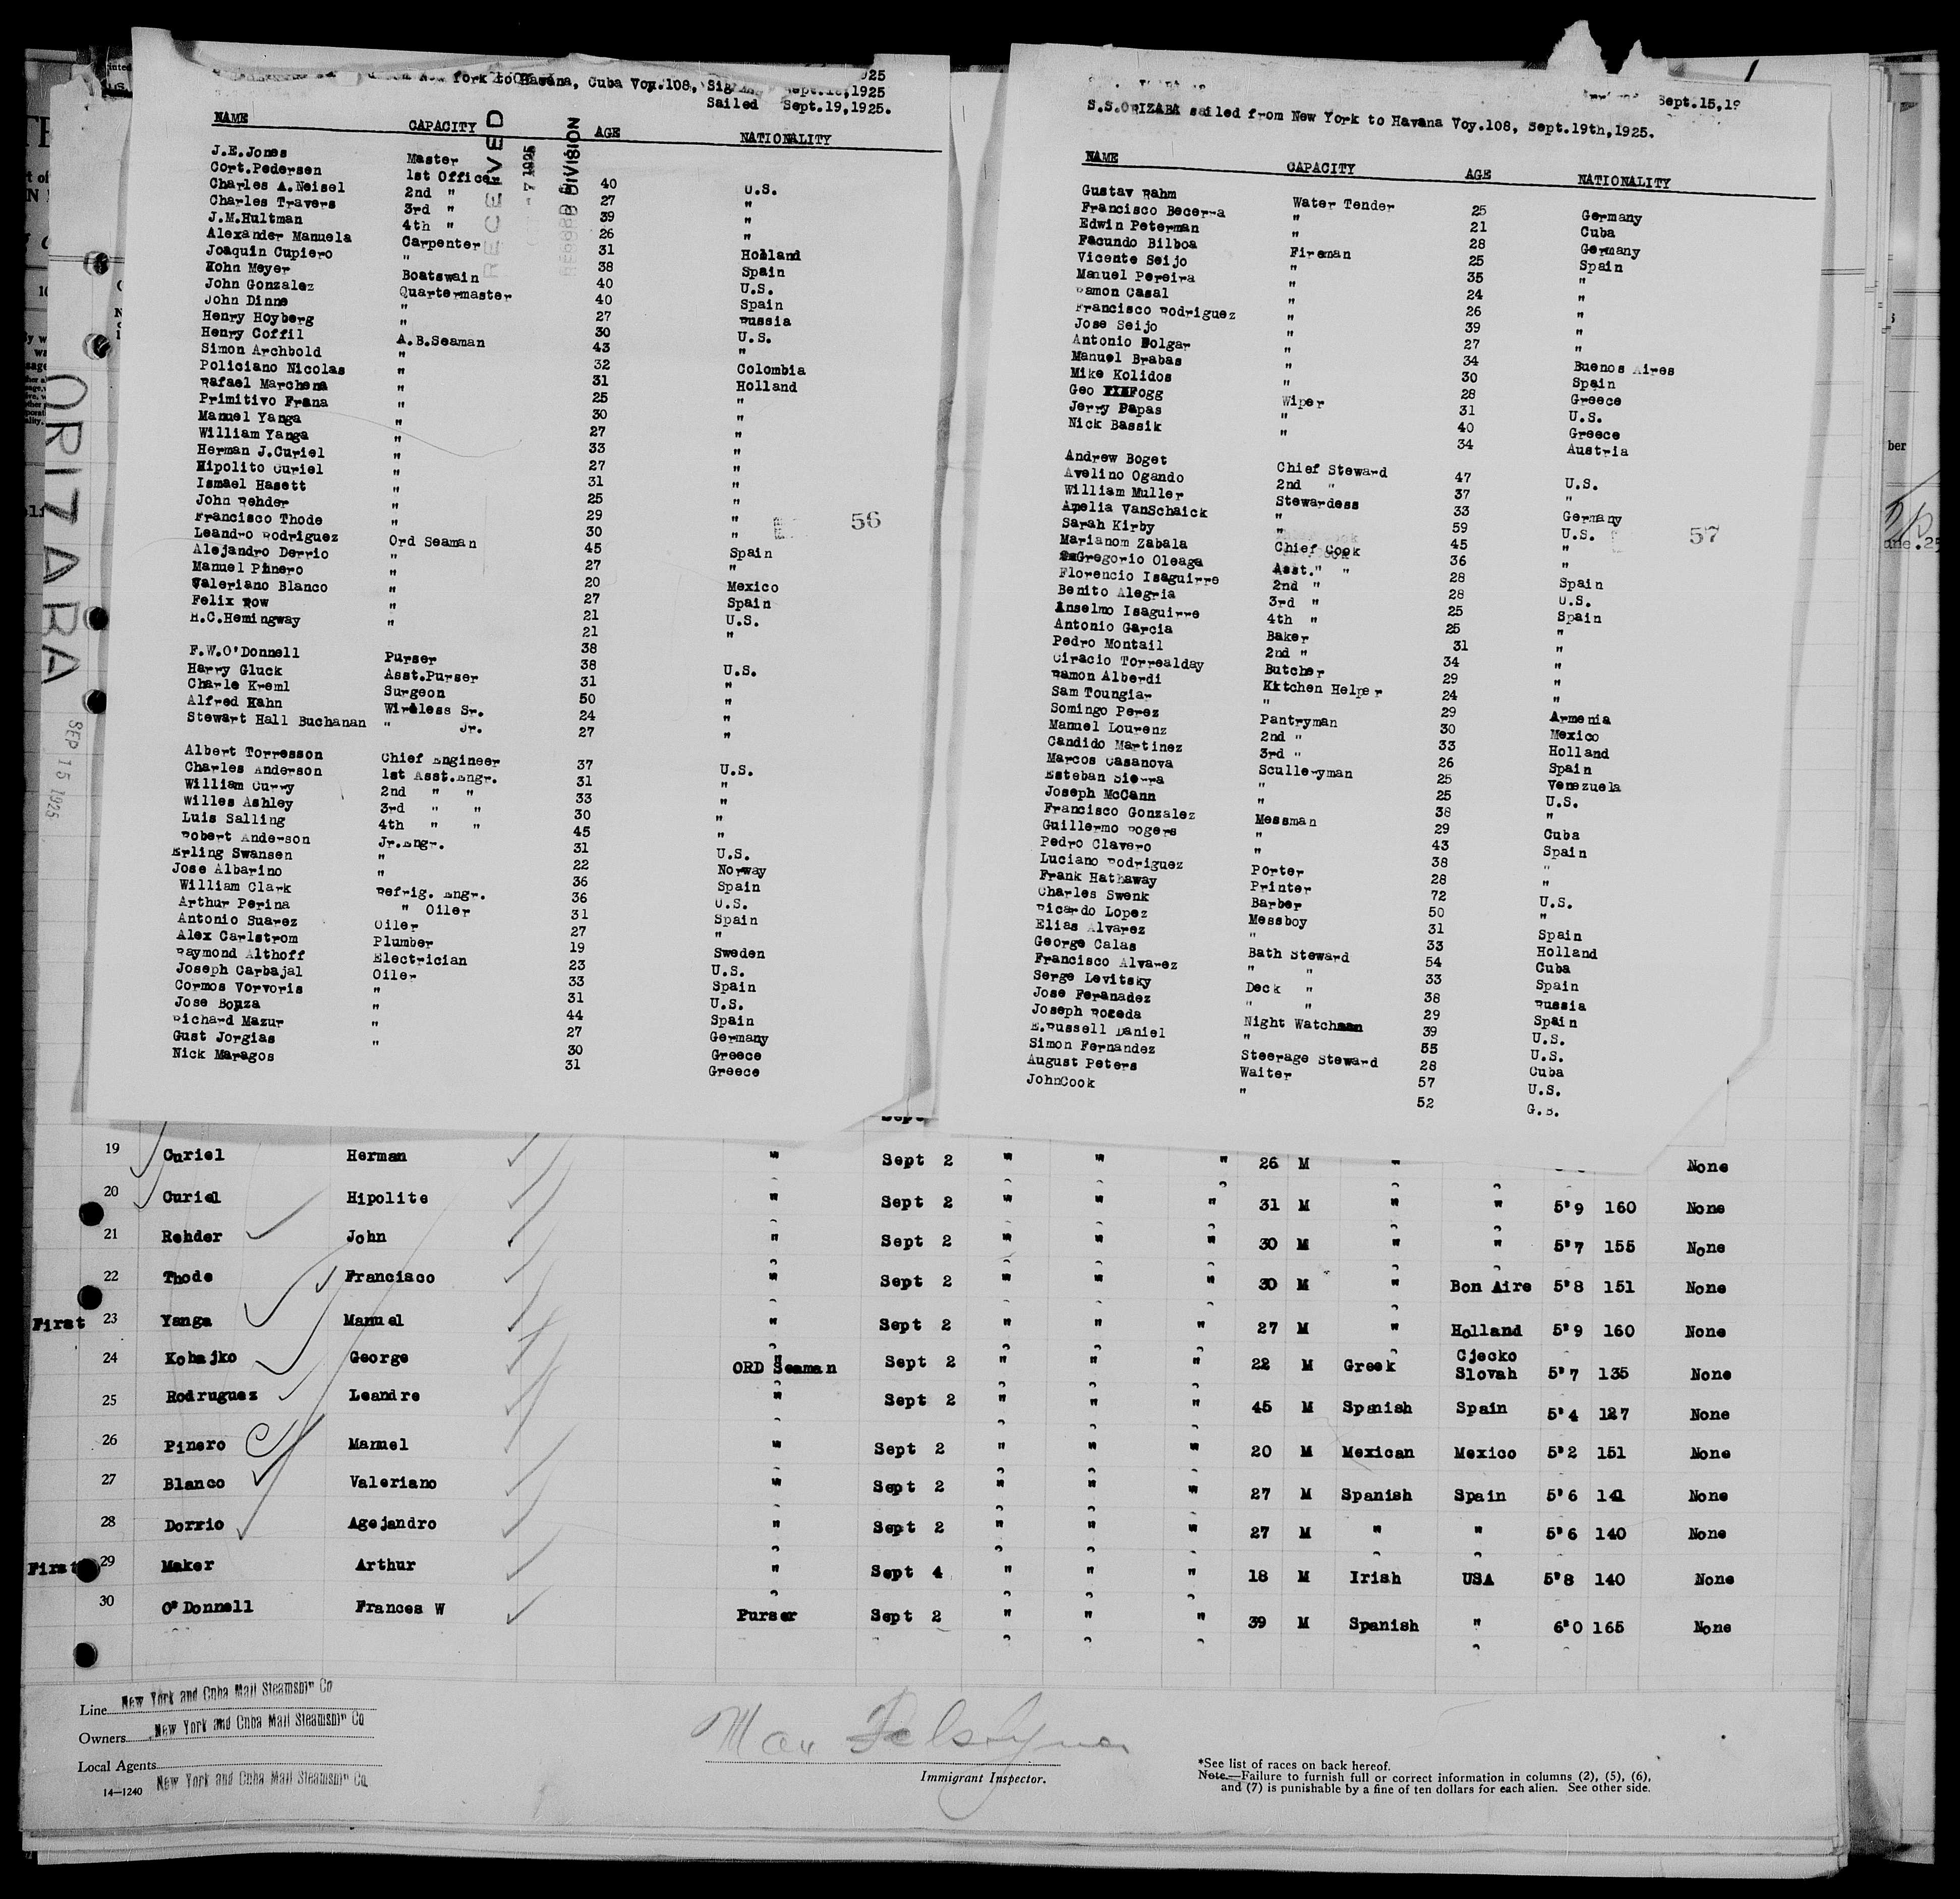 New York to Havana, Cuba Voy.108, Sept.18,1925
Sailed Sept.19,1925.
NAME CAPACITY AGE NATIONALITY
J.E.Jones Master
Cort.Pedersen 1st Officer 40 U.S.
Charles A.Neisel 2nd " 27 "
Charles Travers 3rd " 39 "
J.M.Hultman 4th " 26 "
Alexander Manuela Carpenter 31 Holland
Joaquin Cupiero " 38 Spain
John Meyer Boatswain 40 U.S.
John Gonzalez Quartermaster 40 Spain
John Dinne " 27 Russia
Henry Hoyberg " 30 U.S.
Henry Coffil A.B.Seaman 43 "
Simon Archbold " 32 Colombia
Policiano Nicolas " 31 Holland
Rafael Marchena " 25 "
Primitivo Frana " 30 "
Manuel Yanga " 27 "
William Yanga " 33 "
Herman J.Curiel " 27 "
Hipolito Curiel " 31 "
Ismael Hasett " 25 "
John Rehder " 29 "
Francisco Thode " 30 "
Leandro Rodriguez Ord Seaman 45 Spain
Alejandro Derrio " 27 "
Manuel Pinero " 20 Mexico
Valeriano Blanco " 27 Spain
Felix Row " 21 U.S.
H.C.Hemingway " 21 "
38
F.W.O'Donnell Purser 38 U.S.
Harry Gluck Asst.Purser 31 "
Charle Kreml Surgeon 50 "
Alfred Kahn Wireless Sr. 24 "
Stewart Hall Buchanan " Jr. 27 "
Albert Torresson Chief Engineer 37 U.S.
Charles Anderson 1st Asst.Engr. 31 "
William Curry 2nd " " 33 "
Willes Ashley 3rd " " 30 "
Luis Salling 4th " " 45 "
Robert Anderson Jr.Engr. 31 U.S.
Erling Swansen " 22 Norway
Jose Albarino " 36 Spain
William Clark Refrig. Engr. 36 U.S.
Arthur Perina " Oiler 31 Spain
Antonio Suarez Oiler 27 "
Alex Carlstrom Plumber 19 Sweden
Raymond Althoff Electrician 23 U.S.
Joseph Carbajal Oiler 33 Spain
Cormos Vorvoris " 31 U.S.
Jose Bouza " 44 Spain
Richard Mazur " 27 Germany
Gust Jorgias " 30 Greece
Nick Maragos 31 Greece
RECEIVED
DIVISION
56
1
Sept.15,19
S.S.ORIZABA sailed from New York to Havana Voy.108, Sept.19th,1925.
NAME CAPACITY AGE NATIONALITY
Gustav Rahm Water Tender 25 Germany
Francisco Becerra " 21 Cuba
Edwin Peterman " 28 Germany
Facundo Bilboa Fireman 25 Spain
Vicente Seijo " 35 "
Manuel Pereira " 24 "
Ramon Casal " 26 "
Francisco Rodriguez " 39 "
Jose Seijo " 27 "
Antonio Bolgar " 34 Buenos Aires
Manuel Brabas " 30 Spain
Mike Kolidos " 28 Greece
Geo Fogg Wiper 31 U.S.
Jerry Papas " 40 Greece
Nick Bassik " 34 Austria
Andrew Boget Chief Steward 47 U.S.
Avelino Ogando 2nd " 37 "
William Muller Stewardess 33 Germany
Amelia VanSchaick " 59 U.S.
Sarah Kirby " 45 "
Marianom Zabala Chief Cook 36 "
Gregorio Oleaga Asst." " 28 Spain
Florencio Isaguirre 2nd " 28 U.S.
Benito Alegria 3rd " 25 Spain
Anselmo Isaguirre 4th " 25 "
Antonio Garcia Baker 31 "
Pedro Montail 2nd " 34 "
Ciracio Torrealday Butcher 29 "
Ramon Alberdi Kitchen Helper 24 "
Sam Toungiar " 29 Armenia
Somingo Perez Pantryman 30 Mexico
Manuel Lourenz 2nd " 33 Holland
Candido Martinez 3rd " 26 Spain
Marcos Casanova Sculleryman 25 Venezuela
Esteban Sierra " 25 U.S.
Joseph McCann " 38 "
Francisco Gonzalez Messman 29 Cuba
Guillermo Rogers " 43 Spain
Pedro Clavero " 38 "
Luciano Rodriguez Porter 28 "
Frank Hathaway Printer 72 U.S.
Charles Swenk Barber 50 "
Ricardo Lopez Messboy 31 Spain
Elias Alvarez " 33 Holland
George Calas Bath Steward 54 Cuba
Francisco Alvarez " " 33 Spain
Serge Levitsky Deck " 38 Russia
Jose Feranadez " " 29 Spain
Joseph Roceda Night Watchman 39 U.S.
E.Russell Daniel " 55 U.S.
Simon Fernandez Steerage Steward 28 Cuba
August Peters Waiter 57 U.S.
JohnCook " 52 G.B.
57
ORIZABA
SEP 15 1925
19 Curiel Herman " Sept 2 " " " 26 M " None
20 Curiel Hipolite " Sept 2 " " " 31 M " " 5'9 160 None
21 Rehder John " Sept 2 " " " 30 M " " 5'7 155 None
22 Thode Francisco " Sept 2 " " " 30 M " Bon Aire 5'8 151 None
First 23 Yanga Manuel " Sept 2 " " " 27 M " Holland 5'9 160 None
24 Kohajko George ORD Seaman Sept 2 " " " 22 M Greek Cjecko Slovah 5'7 135 None
25 Rodruguez Leandre " Sept 2 " " " 45 M Spanish Spain 5'4 127 None
26 Pinero Manuel " Sept 2 " " " 20 M Mexican Mexico 5'2 151 None
27 Blanco Valeriano " Sept 2 " " " 27 M Spanish Spain 5'6 141 None
28 Dorrio Agejandro " Sept 2 " " " 27 M " " 5'6 140 None
First 29 Maker Arthur " Sept 4 " " " 18 M Irish USA 5'8 140 None
30 O'Donnell Frances W Purser Sept 2 " " " 39 M Spanish " 6'0 165 None
Line New York and Cuba Mail Steamship Co
Owners New York and Cuba Mail Steamship Co
Local Agents New York and Cuba Mail Steamship Co
14—1240
Immigrant Inspector.
*See list of races on back hereof.
Note.—Failure to furnish full or correct information in columns (2), (5), (6),
and (7) is punishable by a fine of ten dollars for each alien. See other side.